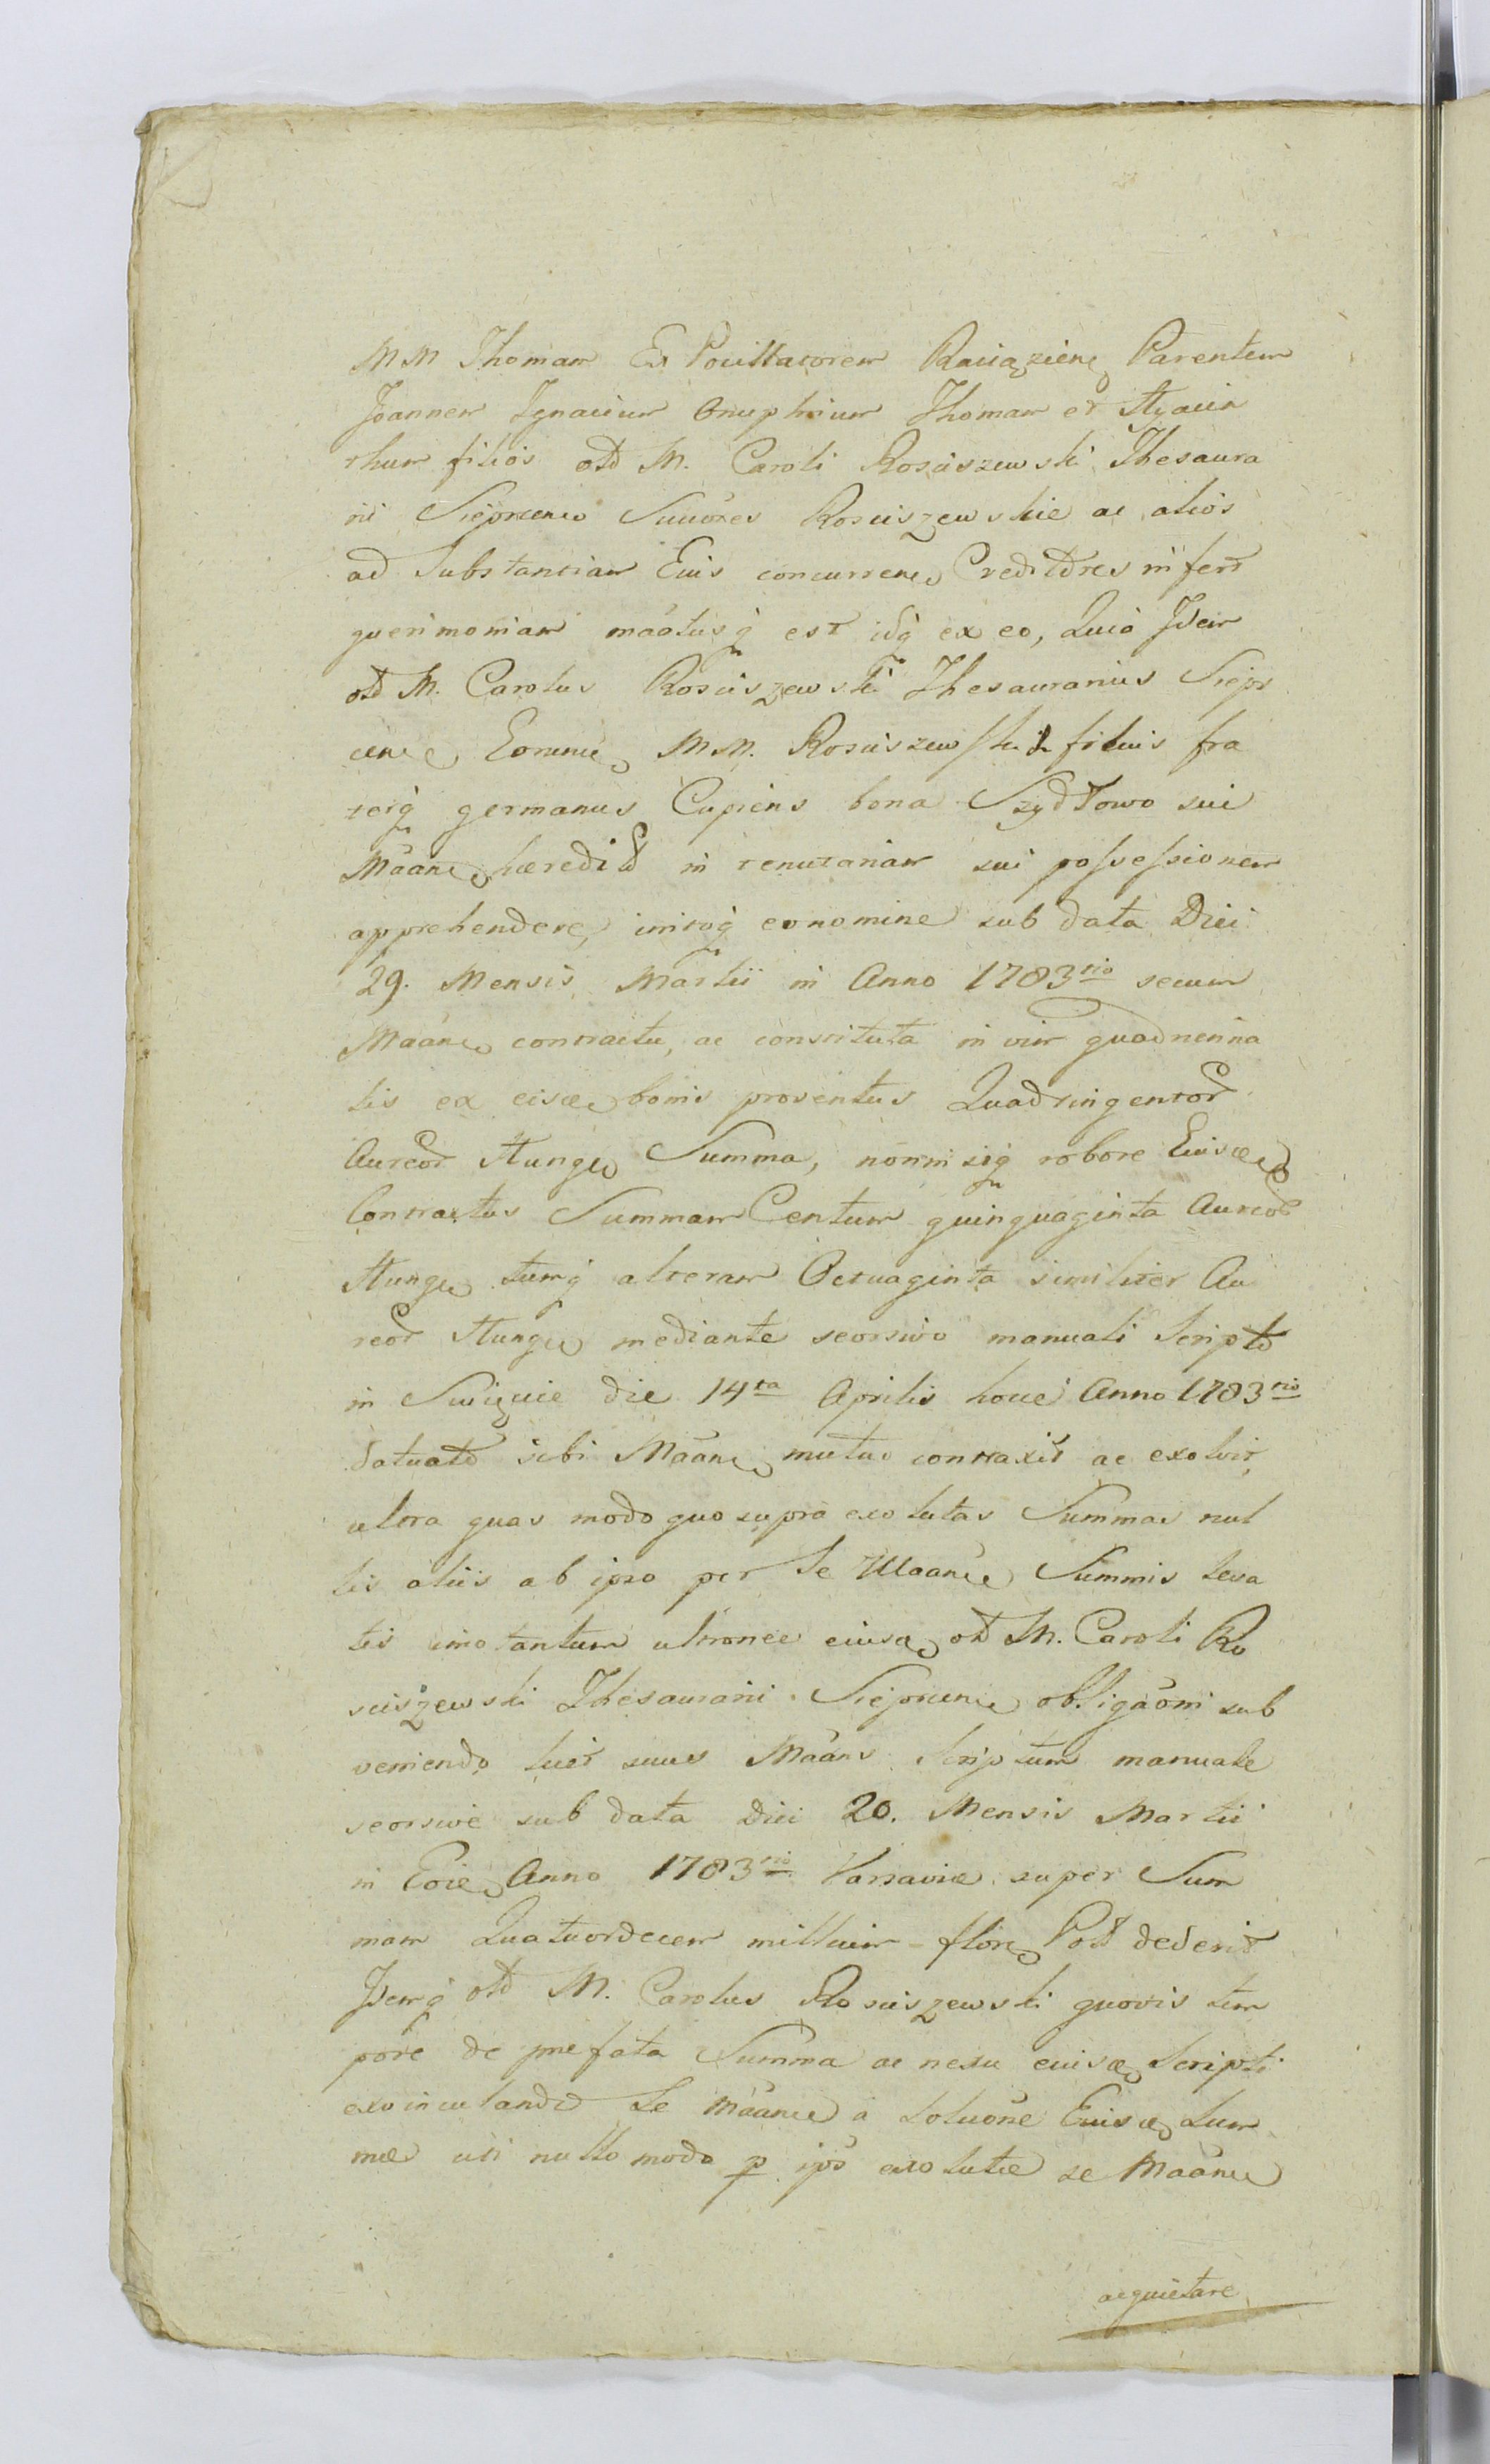 MM Thomam Ex Pocillatorem Raciązien. Parentem
Joannem Ignacium Onuphrium Thomam et Hyacin
thum filios otd M. Caroli Rosciszewski Thesaura
rii Sieprcen. Succōres Rosciszewskie ac alios
ad Substantiam Eius concurren. Creditōres infert
querimoniam māōtusq̃ est idq̃ ex eo, Quia Idem
otd M. Carolus Rosciszewski Thesaurarius Siepr
cen. Eorund. MM. Rosciszewskich filius fra
terq̃ germanus Cupiens bona Szydłowo sui
Māān. hæredit in tenutariam sui possessionem
apprehendere, initoq̃ eo nomine sub data Diei
29. Mensis Martii in Anno 1783tio secum
Māān. contractu, ac constituta in vim quadrienna
lis ex eisd. bonis proventus Quadringentor
Aureor Hung. Summa, nōnnisiq̃ robore Eiusd.
Contractus Summam Centum quinquaginta Aureor
Hung. tumq̃ alteram Octuaginta similiter Au
reor Hung. mediante seorsivo manuali Scripto
in die 14ta Aprilis hocce Anno 1783tio
datuato sibi Māān. mutuo contraxit ac exolvit,
ultra quas modo quo supra exolutas Summas nul
lis aliis ab ipso per Se Māān. Summis leva
tis imo tantum ultronee eiusd. otd M. Caroli Ro
sciszewski Thesaurarii Sieprcen. obligāōni sub
veniendo licet suus Māāns Scriptum manuale
seorsive sub data Diei 20. Mensis Martii
in Eod. Anno 1783tio Varsaviæ super Sum
mam Quatuordecem millium flōr. Pol dederit
Idemq̃ otd M. Carolus Rosciszewski quovis tem
pore de præfata Summa ac nexu eiusd. Scripti
exvinculando Se Māān. a Solutiōne Eiusd. Sum
mæ uti nullo modo p ipō exolutæ se Māān.
acquietare